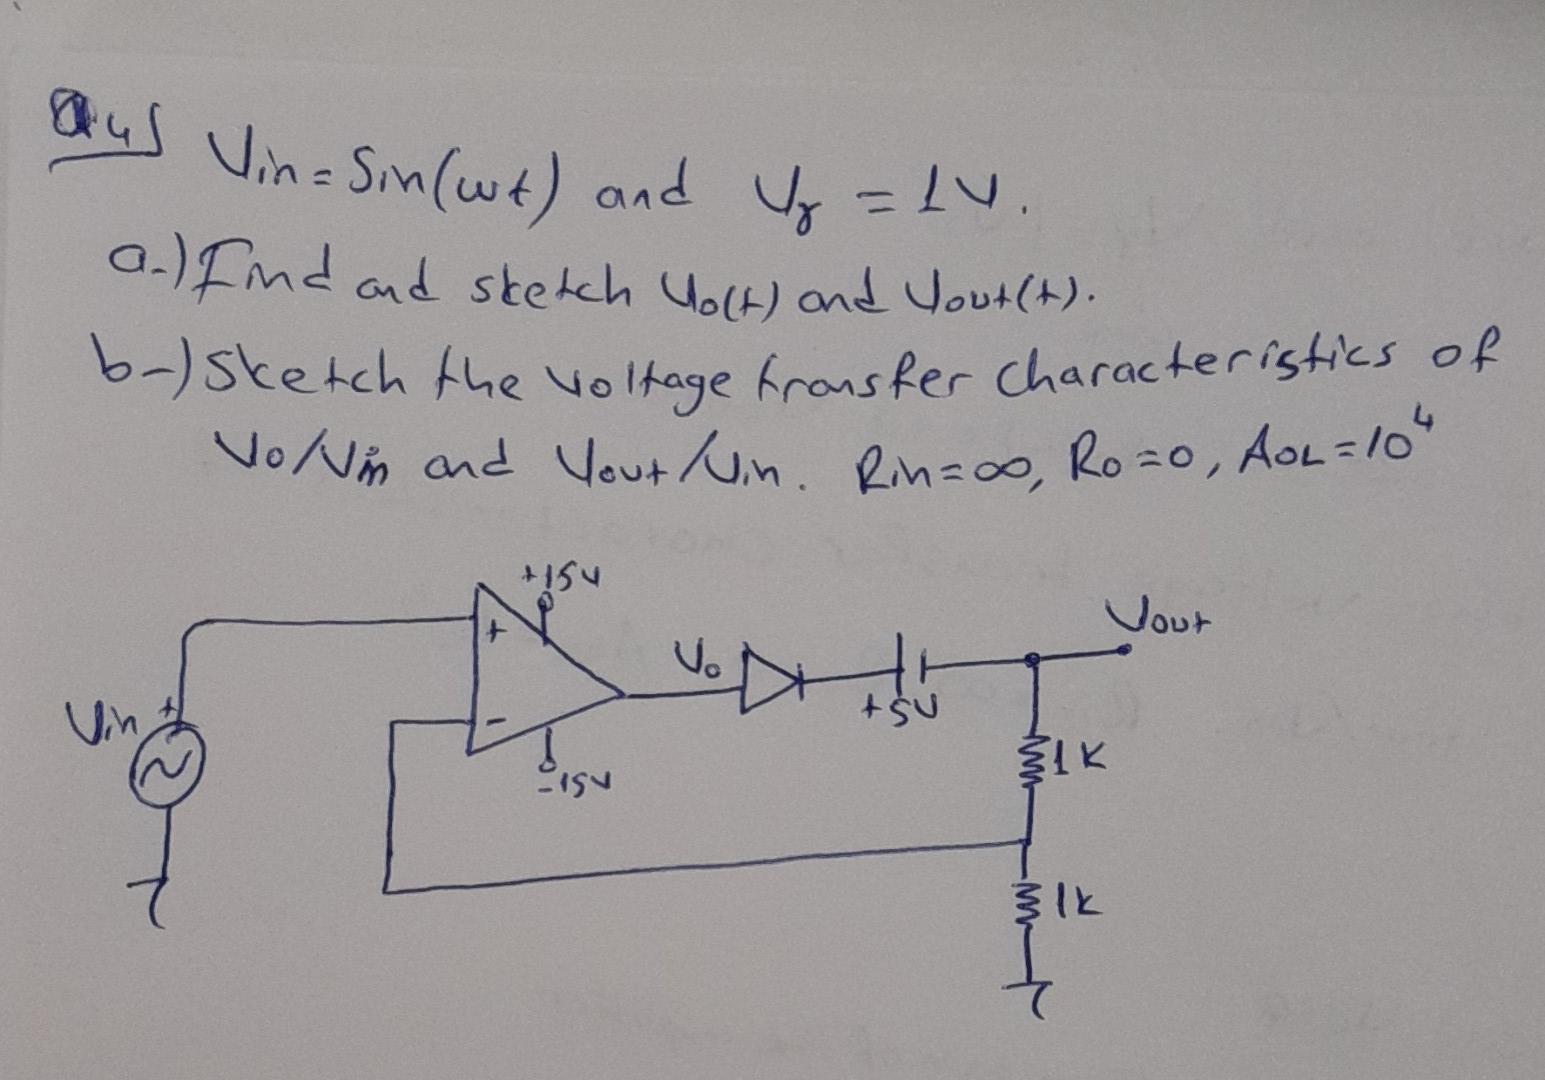 Q4)
Vin = Sin(wt) and Vγ = 1V.
a-) Find and sketch Vo(t) and Vout(t).
b-) Sketch the voltage transfer characteristics of
Vo/Vin and Vout/Vin. Rin=∞, Ro=0, AOL=10⁴
+15V
Vout
+
Vo
Vin
+
+5V
-
1K
-15V
1k